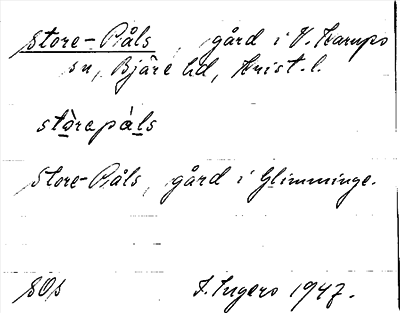 Store-Påls, gård i V. Karups
sn, Bjäre hd, Krist. l.
stòrepàls
Store-Påls, gård i Glimminge.
SOs
I. Ingers 1947.